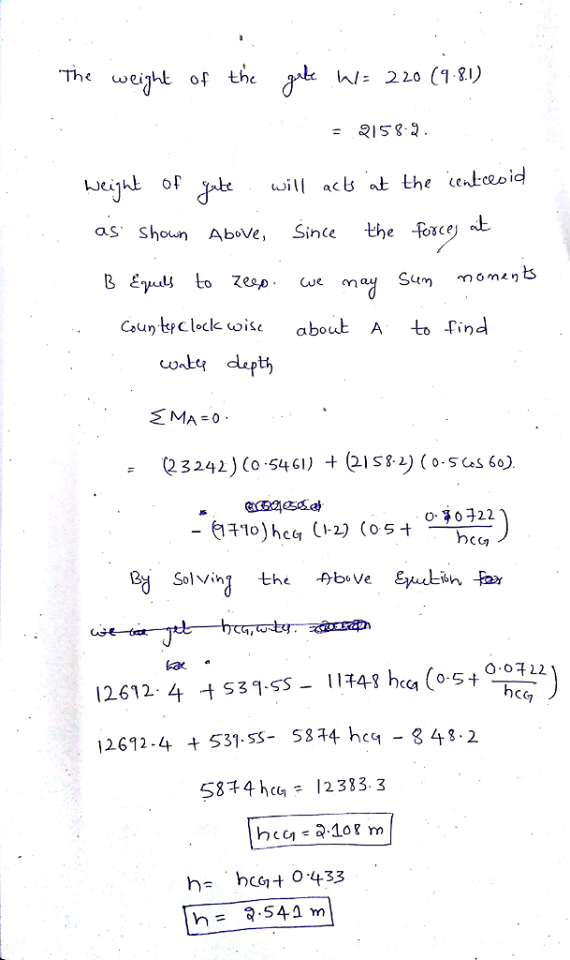 The weight of the gate W = 220 (9.81)
= 2158.2.
Weight of gate will acts at the centeroid
as shown Above, Since the forces at
B Equls to zero. we may Sum moments
Counterclockwise about A to find
water depth
ΣMA = 0.
= (23242)(0.5461) + (2158.2)(0.5 cos 60).
- (9790) hCG (1.2) (0.5 + 0.0722/hCG)
By Solving the Above Eqution for
we get hCG, wty.
12692.4 + 539.55 - 11748 hCG (0.5 + 0.0722/hCG)
12692.4 + 539.55 - 5874 hCG - 848.2
5874 hCG = 12383.3
hCG = 2.108 m
h = hCG + 0.433
h = 2.541 m